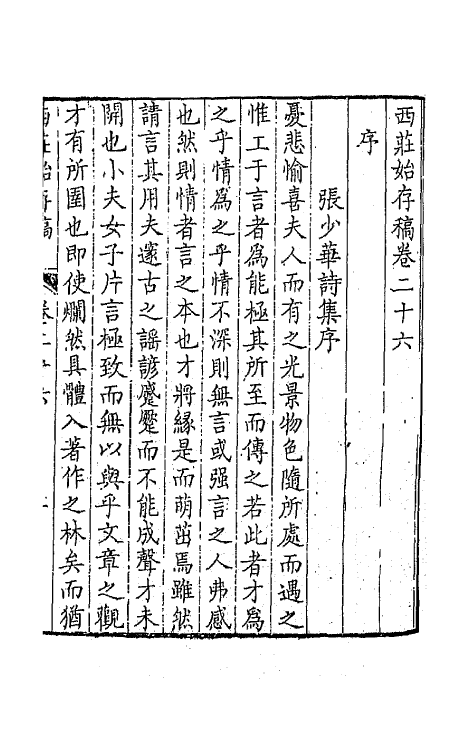 西莊始存稿卷二十六
序
張少華詩集序
憂悲愉喜夫人而有之光景物色隨所處而遇之
惟工于言者爲能極其所至而傳之若此者才爲
之乎情爲之乎情不深則無言或强言之人弗感
也然則情者言之本也才將緣是而萌茁焉雖然
請言其用夫邃古之謡諺蹙蹙而不能成聲才未
開也小夫女子片言極致而無以與乎文章之觀
才有所圍也即使爛然具體入著作之林矣而猶
西莊始存稿 卷二十六